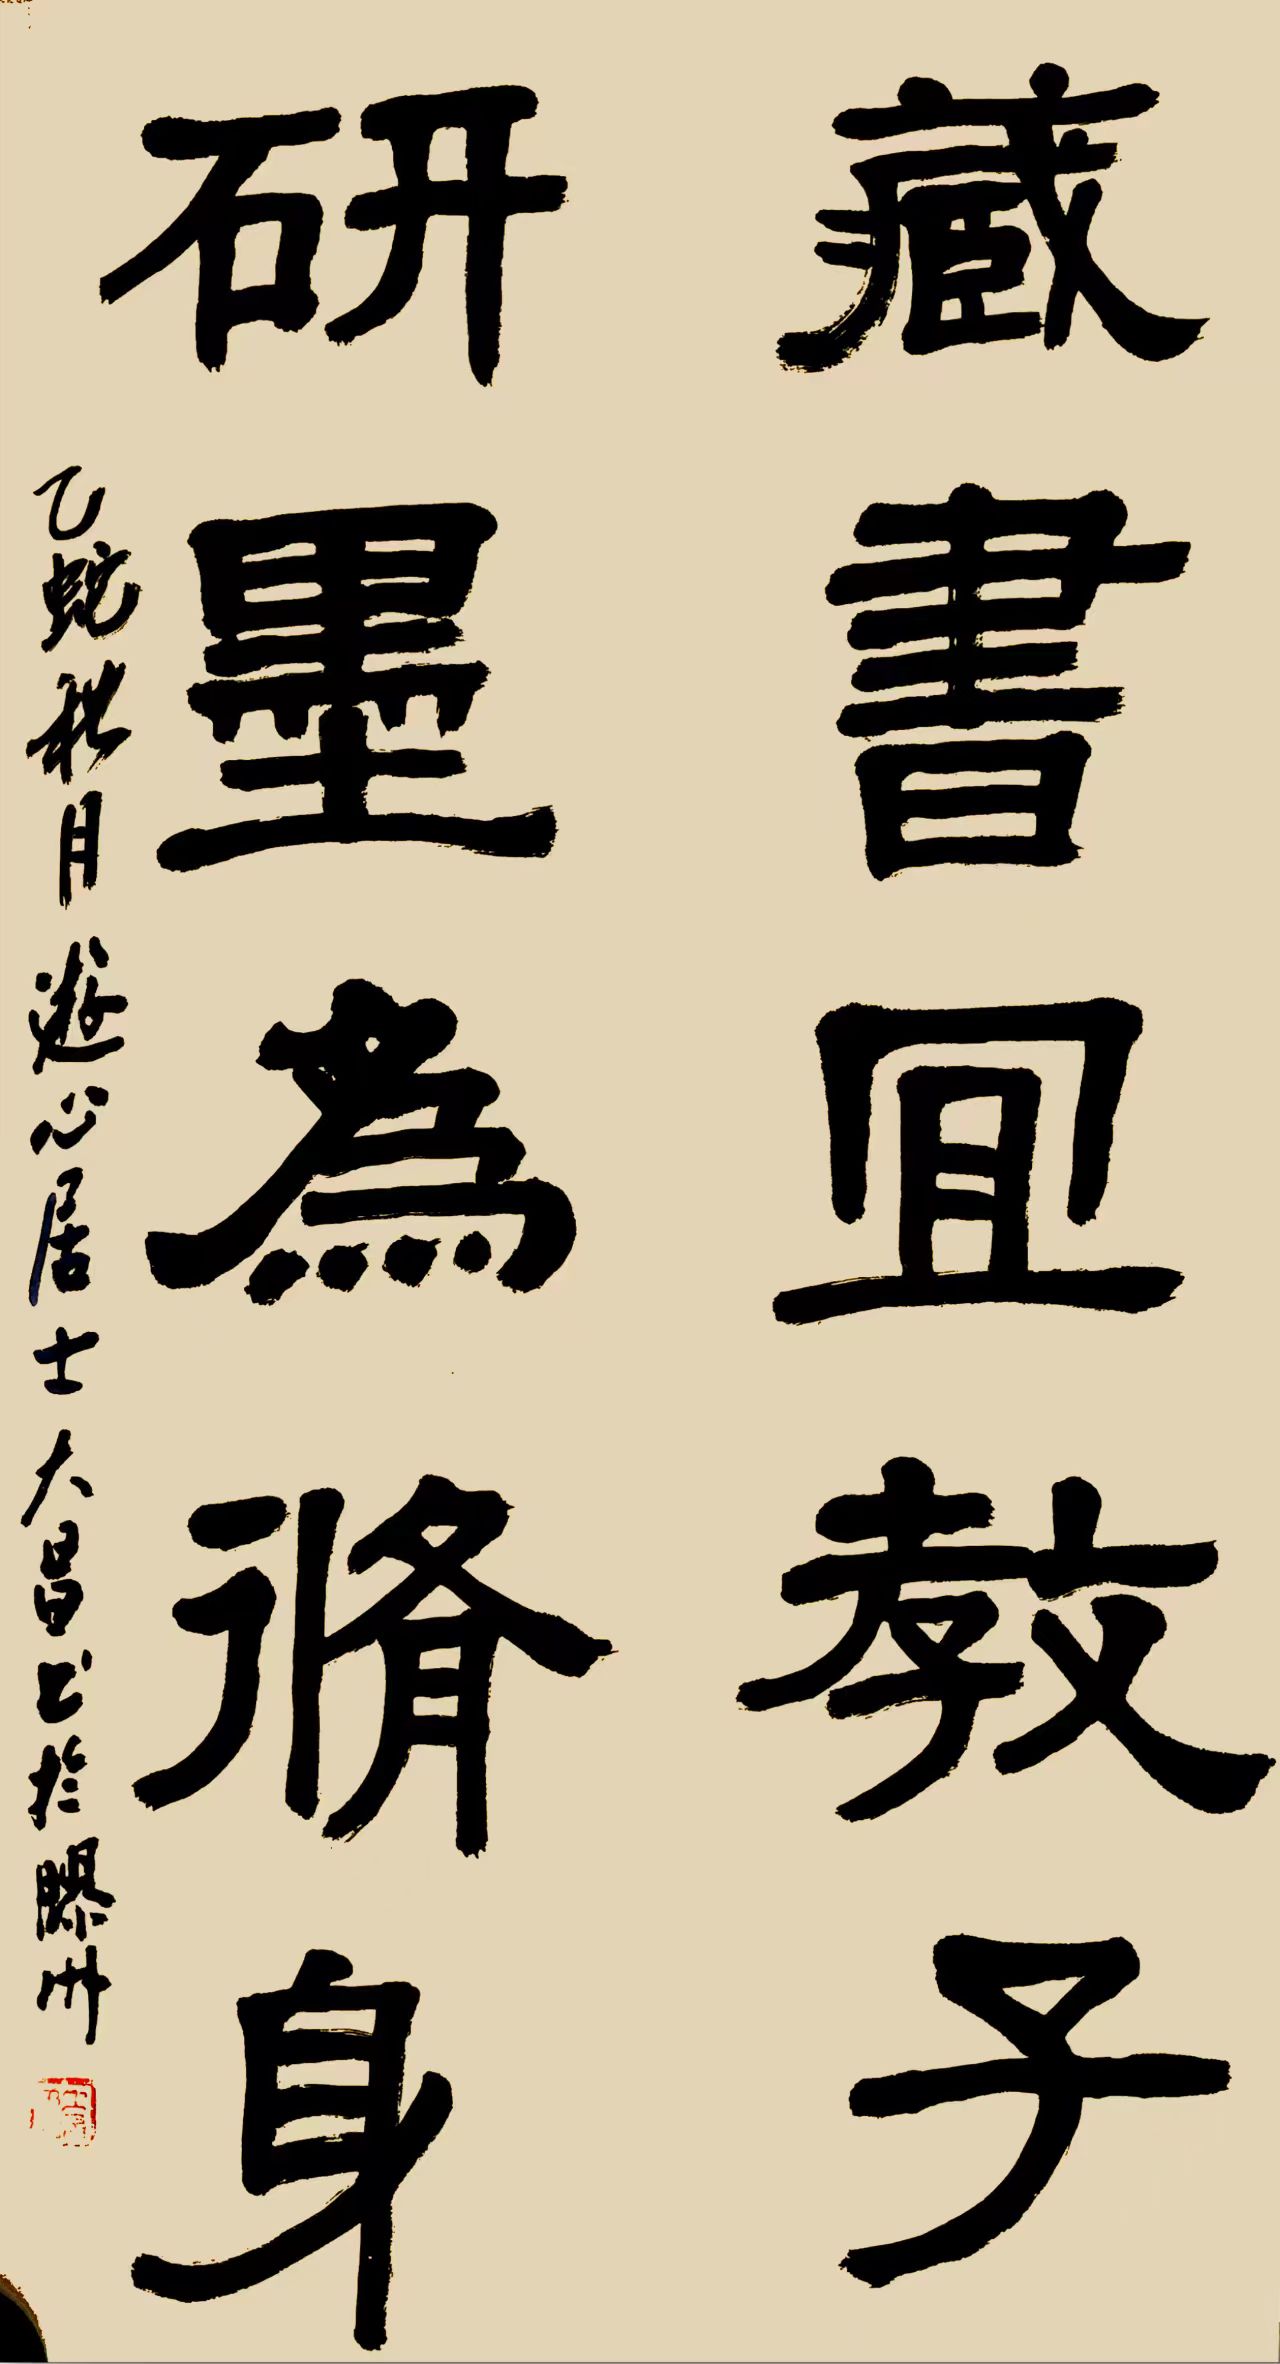 藏書宜教子
研墨為脩身
乙蛇秋月遊心居士大昌书於隰州